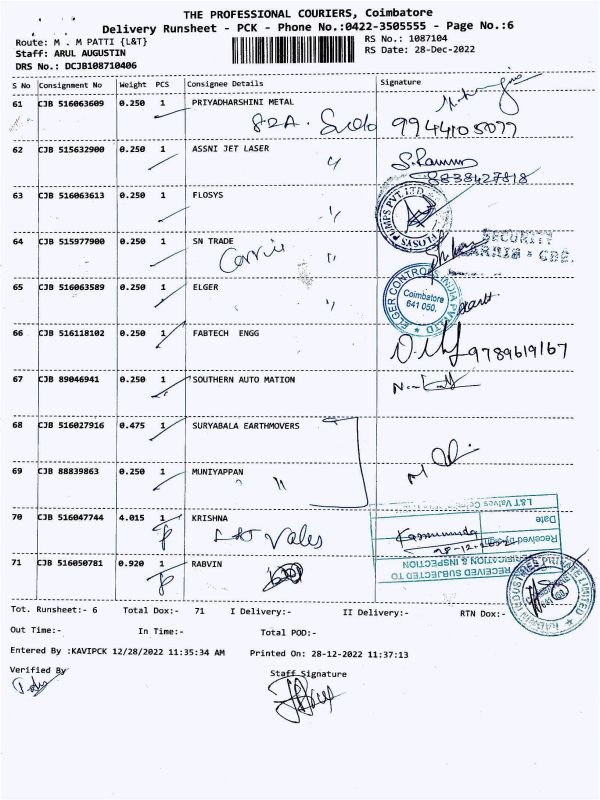 THE PROFESSIONAL COURIERS, Coimbatore
Delivery Runsheet - PCK - Phone No.:0422-3505555 - Page No.:6
Route: M . M PATTI {L&T} RS No.: 1087104
Staff: ARUL AUGUSTIN RS Date: 28-Dec-2022
DRS No.: DCJB108710406
S No Consignment No Weight PCS Consignee Details Signature
61 CJB 516063609 0.250 1 PRIYADHARSHINI METAL
9944105077
62 CJB 515632900 0.250 1 ASSNI JET LASER
8838427818
63 CJB 516063613 0.250 1 FLOSYS
FLOSYS PUMPS PVT. LTD.
64 CJB 515977900 0.250 1 SN TRADE
SECURITY
CBE
65 CJB 516063589 0.250 1 ELGER
ELGER CONTROLS INDIA PVT LTD
Coimbatore
641 050.
66 CJB 516118102 0.250 1 FABTECH ENGG
9789619167
67 CJB 89046941 0.250 1 SOUTHERN AUTO MATION
68 CJB 516027916 0.475 1 SURYABALA EARTHMOVERS
69 CJB 88839863 0.250 1 MUNIYAPPAN
70 CJB 516047744 4.015 1 KRISHNA
L&T Vales
L&T Valves
Date
Received by
RECEIVED SUBJECTED TO
VERIFICATION & INSPECTION
71 CJB 516050781 0.920 1 RABVIN
INDUSTRIES PRIVATE LIMITED
Tot. Runsheet:- 6 Total Dox:- 71 I Delivery:- II Delivery:- RTN Dox:-
Out Time:- In Time:- Total POD:-
Entered By :KAVIPCK 12/28/2022 11:35:34 AM Printed On: 28-12-2022 11:37:13
Verified By Staff Signature